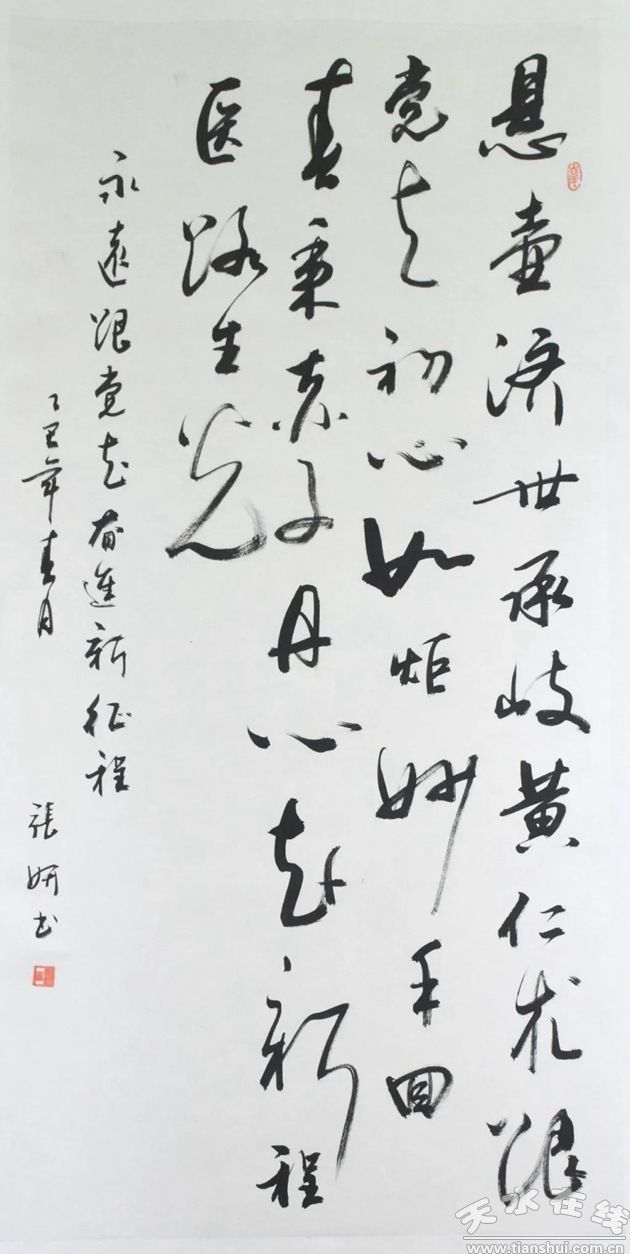 悬壺济世承岐黄仁术跟
党走初心如炬妙手回
春秉赤子丹心赴新程
医路生光
永遠跟党走奋進新征程
乙巳年春月
張妍书
天水在线
www.tianshui.com.cn